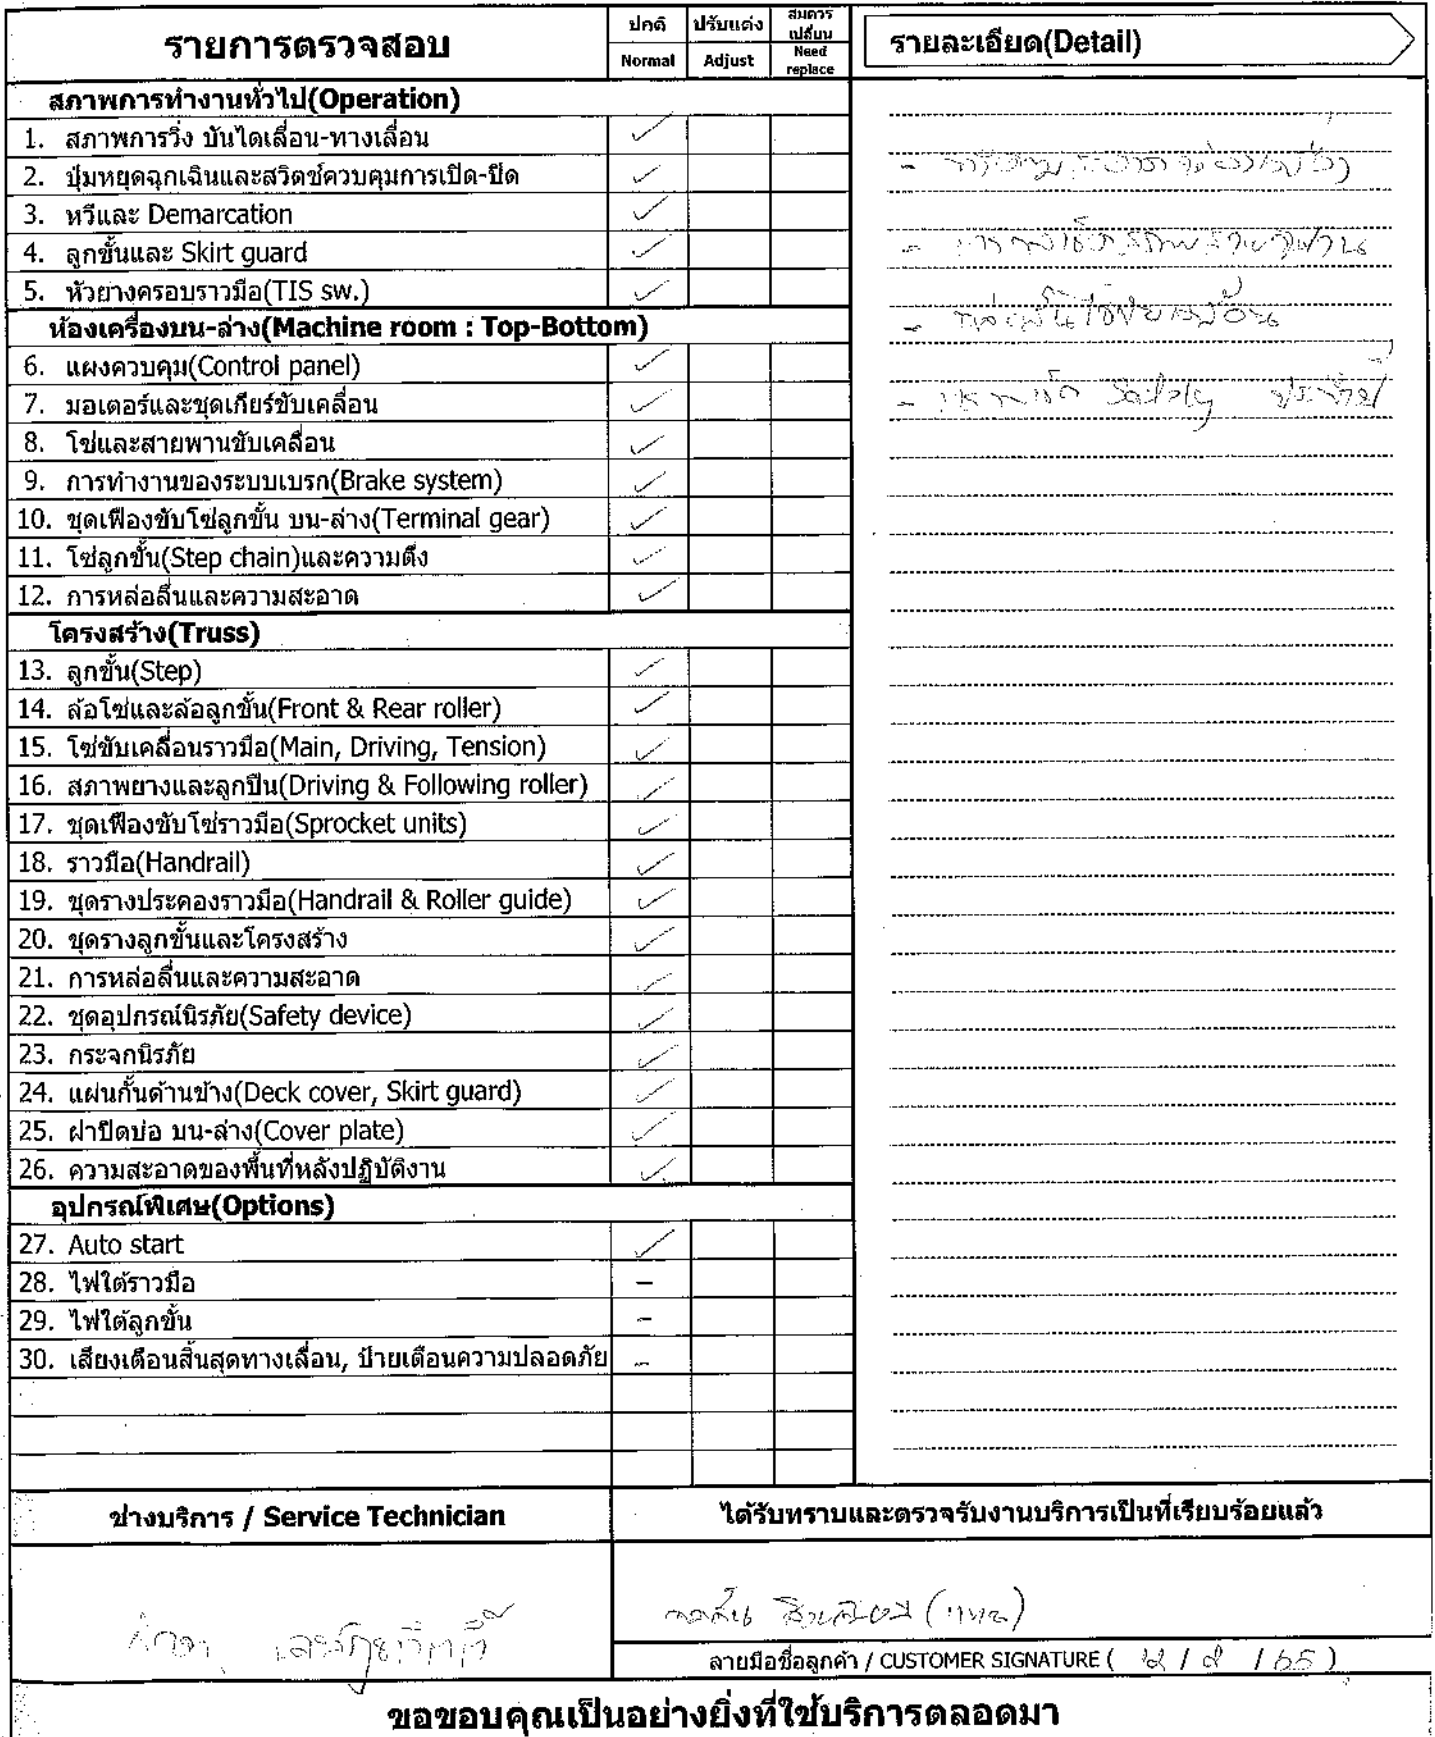 รายการตรวจสอบ
ปกติ
Normal
ปรับแต่ง
Adjust
สมควร
เปลี่ยน
Need
replace
รายละเอียด(Detail)
สภาพการทำงานทั่วไป(Operation)
1. สภาพการวิ่ง บันไดเลื่อน-ทางเลื่อน ✓
2. ปุ่มหยุดฉุกเฉินและสวิตช์ควบคุมการเปิด-ปิด ✓
3. หวีและ Demarcation ✓
4. ลูกขั้นและ Skirt guard ✓
5. หัวยางครอบราวมือ(TIS sw.) ✓
ห้องเครื่องบน-ล่าง(Machine room : Top-Bottom)
6. แผงควบคุม(Control panel) ✓
7. มอเตอร์และชุดเกียร์ขับเคลื่อน ✓
8. โซ่และสายพานขับเคลื่อน ✓
9. การทำงานของระบบเบรก(Brake system) ✓
10. ชุดเฟืองขับโซ่ลูกขั้น บน-ล่าง(Terminal gear) ✓
11. โซ่ลูกขั้น(Step chain)และความตึง ✓
12. การหล่อลื่นและความสะอาด ✓
โครงสร้าง(Truss)
13. ลูกขั้น(Step) ✓
14. ล้อโซ่และล้อลูกขั้น(Front & Rear roller) ✓
15. โซ่ขับเคลื่อนราวมือ(Main, Driving, Tension) ✓
16. สภาพยางและลูกปืน(Driving & Following roller) ✓
17. ชุดเฟืองขับโซ่ราวมือ(Sprocket units) ✓
18. ราวมือ(Handrail) ✓
19. ชุดรางประคองราวมือ(Handrail & Roller guide) ✓
20. ชุดรางลูกขั้นและโครงสร้าง ✓
21. การหล่อลื่นและความสะอาด ✓
22. ชุดอุปกรณ์นิรภัย(Safety device) ✓
23. กระจกนิรภัย ✓
24. แผ่นกั้นด้านข้าง(Deck cover, Skirt guard) ✓
25. ฝาปิดบ่อ บน-ล่าง(Cover plate) ✓
26. ความสะอาดของพื้นที่หลังปฏิบัติงาน ✓
อุปกรณ์พิเศษ(Options)
27. Auto start ✓
28. ไฟใต้ราวมือ -
29. ไฟใต้ลูกขั้น -
30. เสียงเตือนสิ้นสุดทางเลื่อน, ป้ายเตือนความปลอดภัย -
ช่างบริการ / Service Technician
ได้รับทราบและตรวจรับงานบริการเป็นที่เรียบร้อยแล้ว
ลายมือชื่อลูกค้า / CUSTOMER SIGNATURE ( / / 65 )
ขอขอบคุณเป็นอย่างยิ่งที่ใช้บริการตลอดมา